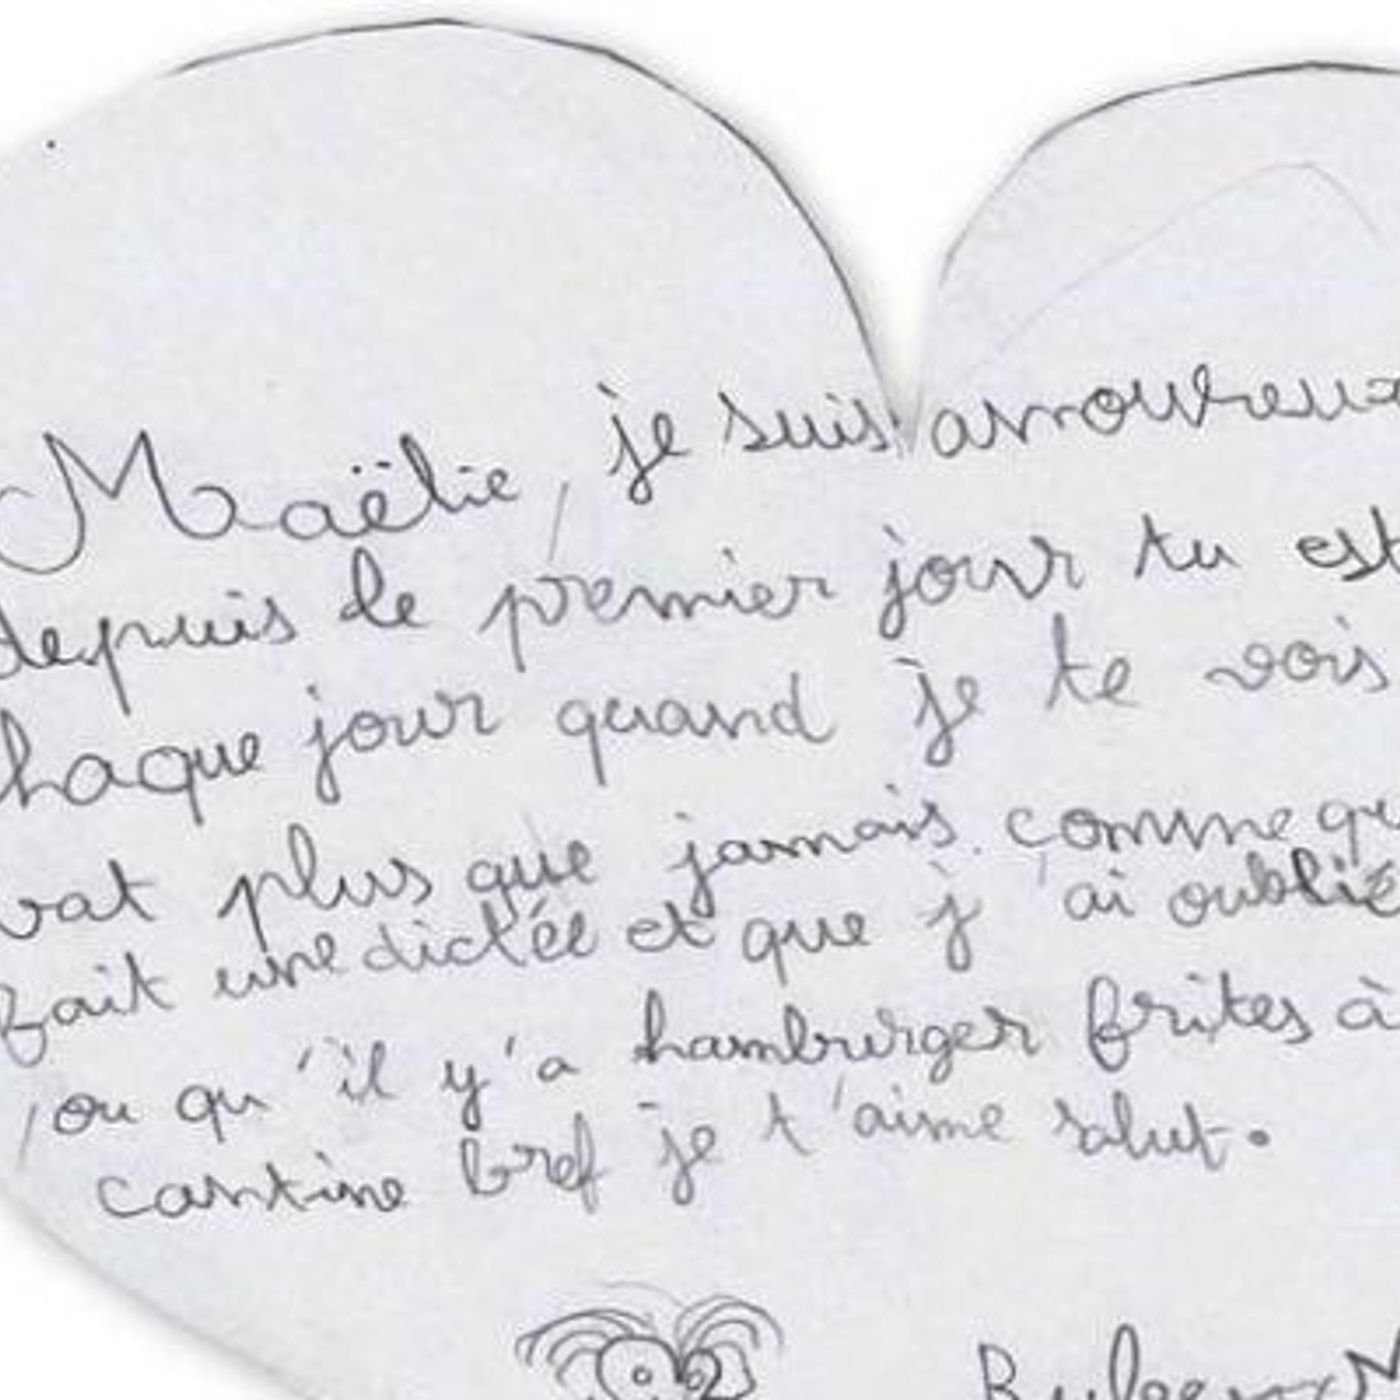 Maëlie, je suis amoureux
depuis le premier jour tu est
haque jour quand je te vois
vat plus que jamais. comme qu
fait une dictée et que j'ai oublié
ou qu'il y'a hamburger frites à
cantine bref je t'aime salut.